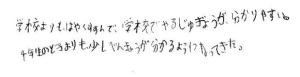 学校よりもはやくすすんで、学校でやるじゅぎょうが、分かりやすい。
4年生のときよりも、少しべんきょうが分かるようになってきた。